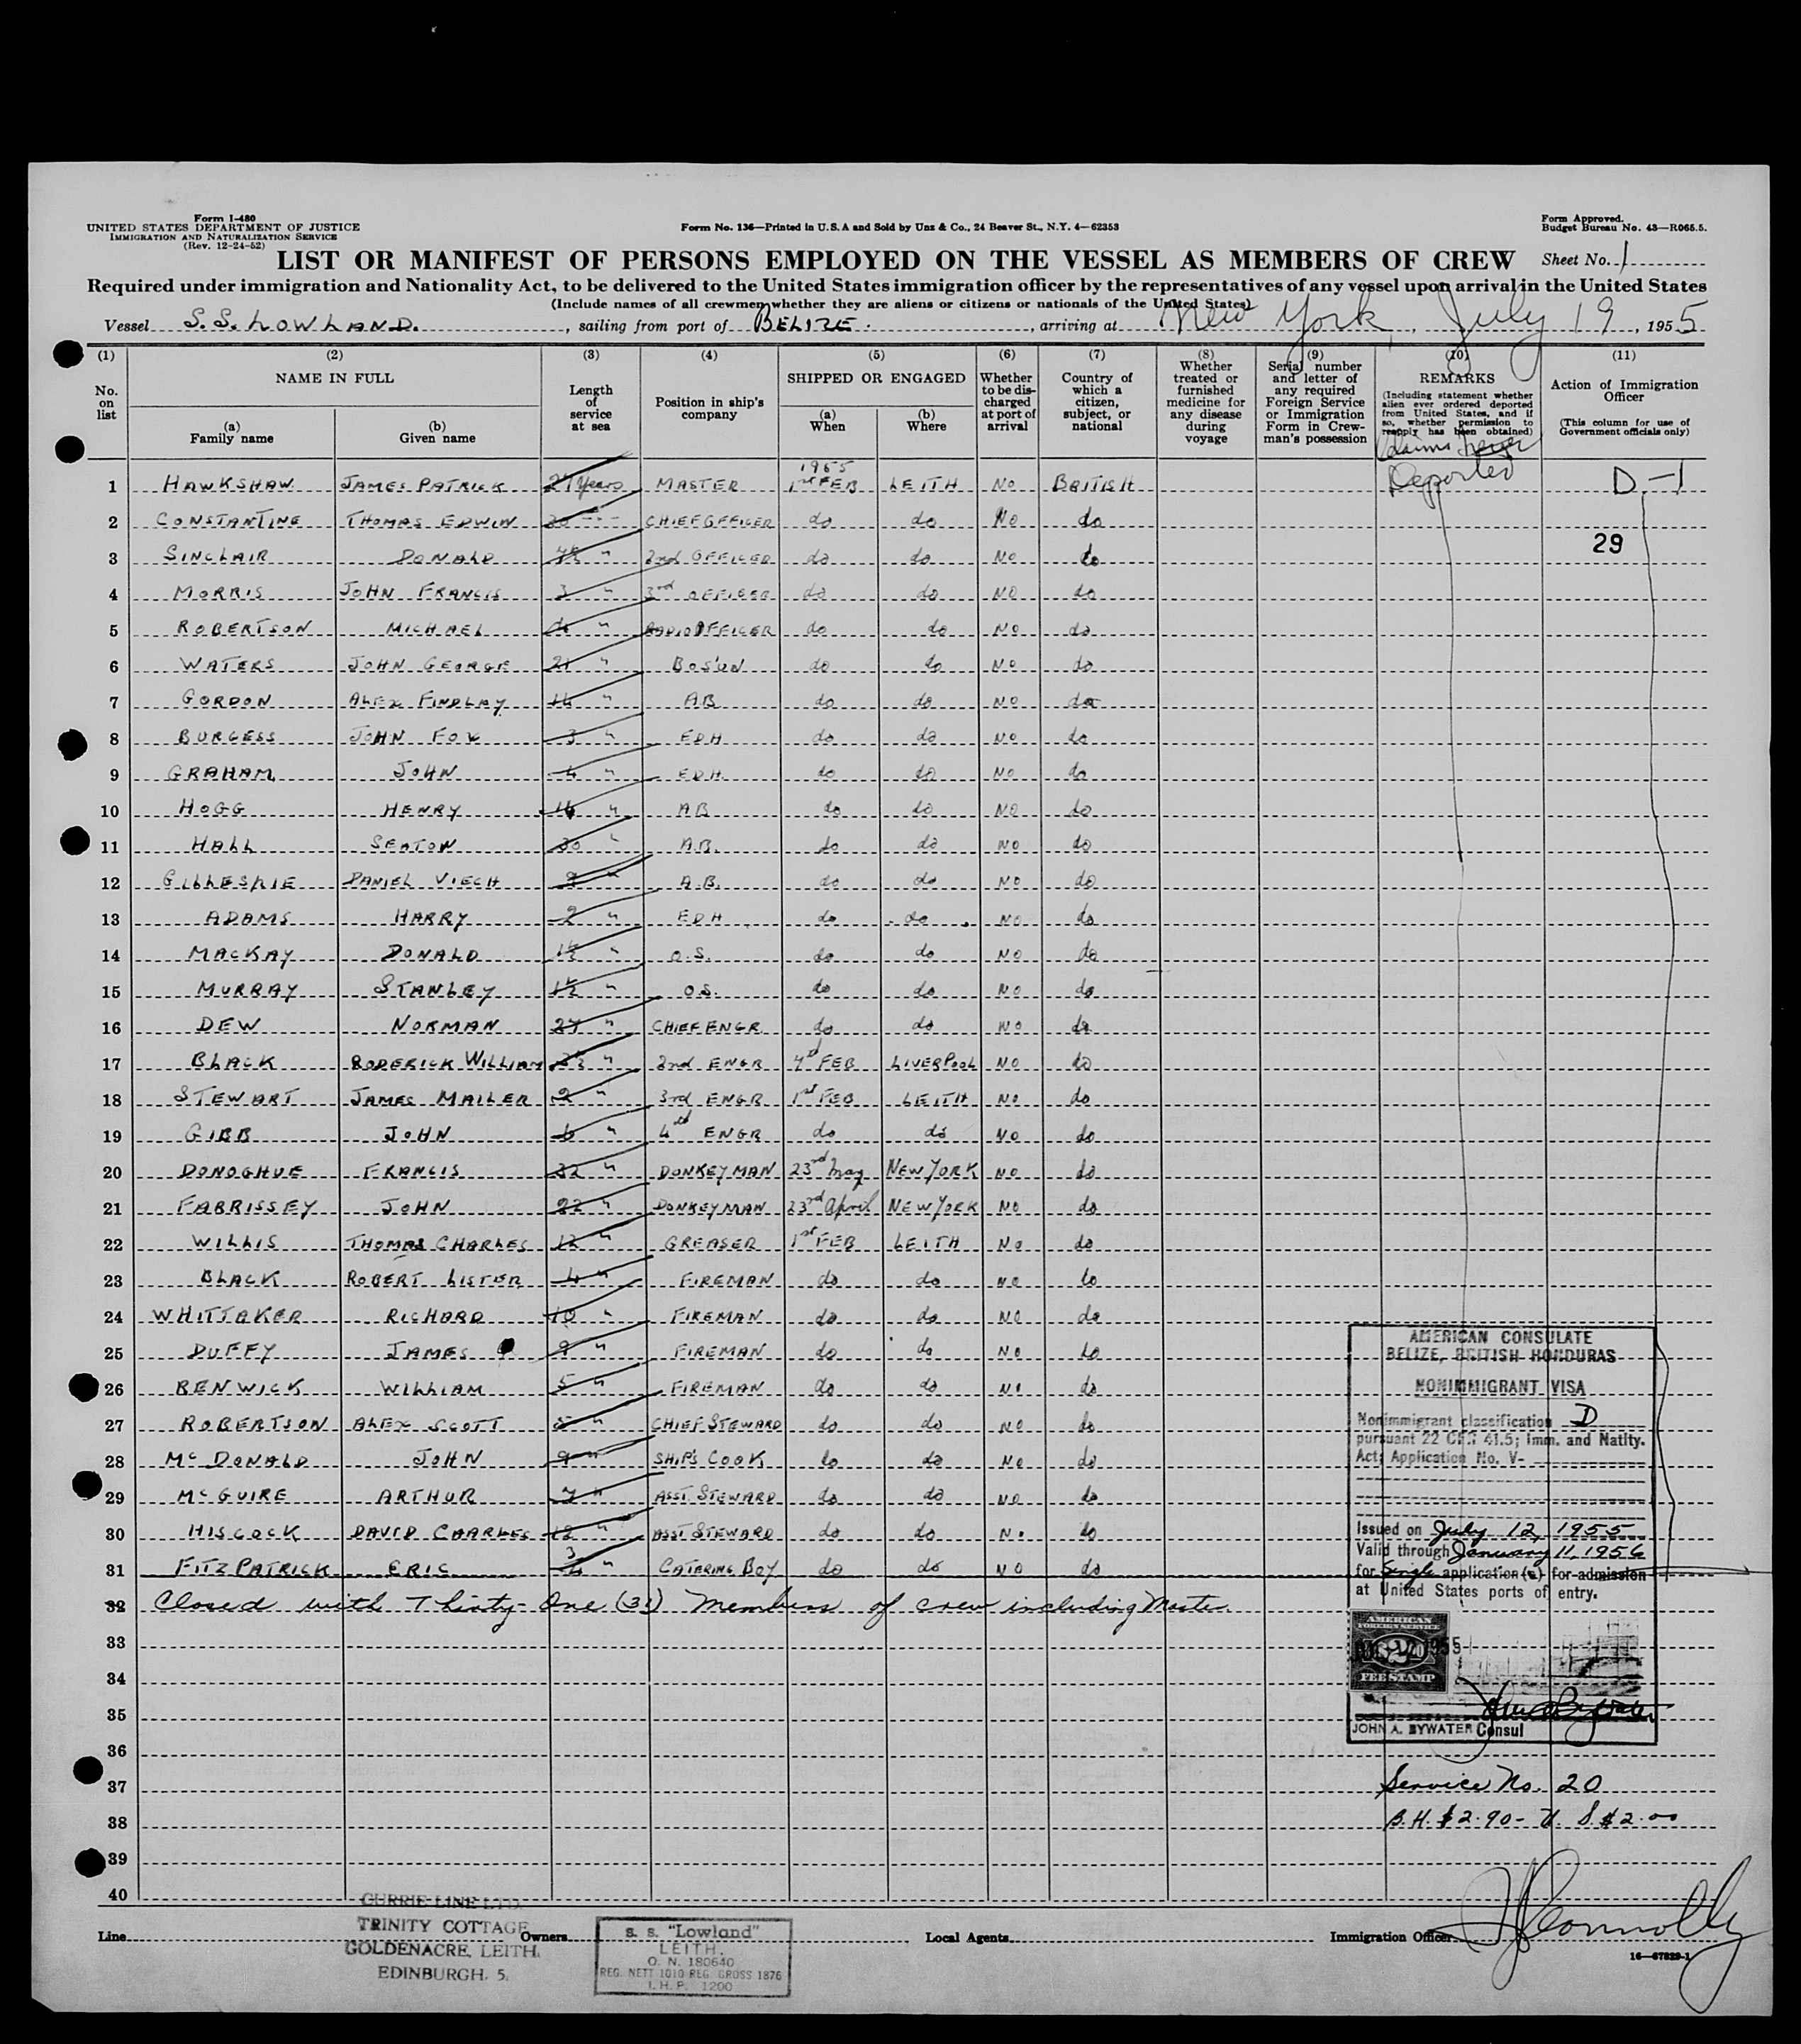 Form I-480
UNITED STATES DEPARTMENT OF JUSTICE
IMMIGRATION AND NATURALIZATION SERVICE
(Rev. 12-24-52)
Form No. 136—Printed in U.S.A and Sold by Unz & Co., 24 Beaver St., N.Y. 4—62353
Form Approved.
Budget Bureau No. 43—R065.5.
LIST OR MANIFEST OF PERSONS EMPLOYED ON THE VESSEL AS MEMBERS OF CREW
Sheet No. 1
Required under immigration and Nationality Act, to be delivered to the United States immigration officer by the representatives of any vessel upon arrival in the United States
(Include names of all crewmen whether they are aliens or citizens or nationals of the United States)
Vessel S.S. LOWLAND. , sailing from port of BELIZE. , arriving at New York , July 19 , 1955
(1) No. on list
(2) NAME IN FULL
(a) Family name
(b) Given name
(3) Length of service at sea
(4) Position in ship's company
(5) SHIPPED OR ENGAGED
(a) When
(b) Where
(6) Whether to be discharged at port of arrival
(7) Country of which a citizen, subject, or national
(8) Whether treated or furnished medicine for any disease during voyage
(9) Serial number and letter of any required Foreign Service or Immigration Form in Crewman's possession
(10) REMARKS
(Including statement whether alien ever ordered deported from United States, and if so, whether permission to reapply has been obtained)
(11) Action of Immigration Officer
(This column for use of Government officials only)
Claims Never
Deported
1955
1 HAWKSHAW JAMES PATRICK Years MASTER 1st FEB LEITH NO BRITISH D-1
2 CONSTANTINE THOMAS EDWIN CHIEF OFFICER do do NO do
3 SINCLAIR DONALD " 2nd OFFICER do do NO do 29
4 MORRIS JOHN FRANCIS 3 " 3rd OFFICER do do NO do
5 ROBERTSON MICHAEL " RADIO OFFICER do do NO do
6 WATERS JOHN GEORGE 21 " BOS'UN do do NO do
7 GORDON ALEX FINDLAY 14 " AB do do NO do
8 BURGESS JOHN FOX 3 " EDH do do NO do
9 GRAHAM JOHN 4 " EDH do do NO do
10 HOGG HENRY " AB do do NO do
11 HALL SEATON 30 " A.B. do do NO do
12 GILLESPIE DANIEL VIECH 9 " A.B. do do NO do
13 ADAMS HARRY 2 " EDH do do NO do
14 MACKAY DONALD " O.S. do do NO do
15 MURRAY STANLEY " O.S. do do NO do
16 DEW NORMAN 27 " CHIEF ENGR do do NO do
17 BLACK RODERICK WILLIAM " 2nd ENGR 4th FEB LIVERPOOL NO do
18 STEWART JAMES MAILER 2 " 3rd ENGR 1st FEB LEITH NO do
19 GIBB JOHN 6 " 4th ENGR do do NO do
20 DONOGHUE FRANCIS 32 " DONKEYMAN 23rd May NEW YORK NO do
21 FABRISSEY JOHN 22 " DONKEYMAN 23rd April NEW YORK NO do
22 WILLIS THOMAS CHARLES 12 " GREASER 1st FEB LEITH NO do
23 BLACK ROBERT LISTER 4 " FIREMAN do do NO do
24 WHITTAKER RICHARD 10 " FIREMAN do do NO do
25 DUFFY JAMES 9 " FIREMAN do do NO do
26 RENWICK WILLIAM 5 " FIREMAN do do NO do
27 ROBERTSON ALEX SCOTT 5 " CHIEF STEWARD do do NO do
28 McDONALD JOHN 9 " SHIP'S COOK do do NO do
29 McGUIRE ARTHUR 7 " ASST STEWARD do do NO do
30 HISCOCK DAVID CHARLES 12 " ASST STEWARD do do NO do
31 FITZPATRICK ERIC " CATERING BOY do do NO do
32 Closed with Thirty-One (31) Members of crew including Master.
33
34
35
36
37
38
39
40
AMERICAN CONSULATE
BELIZE, BRITISH HONDURAS
NONIMMIGRANT VISA
Nonimmigrant classification D
pursuant 22 CFR 41.5; Imm. and Natlty.
Act; Application No. V-
Issued on July 12, 1955
Valid through January 11, 1956
for Single application(s) for admission
at United States ports of entry.
AMERICAN
FOREIGN SERVICE
FEE STAMP
JOHN A. BYWATER Consul
Service No. 20
B.H. $2.90 - U.S. $2.00
Line
CURRIE LINE LTD.
TRINITY COTTAGE
GOLDENACRE, LEITH.
EDINBURGH, 5.
Owners
s. s. "Lowland"
LEITH.
O. N. 180640
REG. NETT 1010 REG. GROSS 1876
I. H. P. 1200
Local Agents
Immigration Officer Connolly
16—67829-1